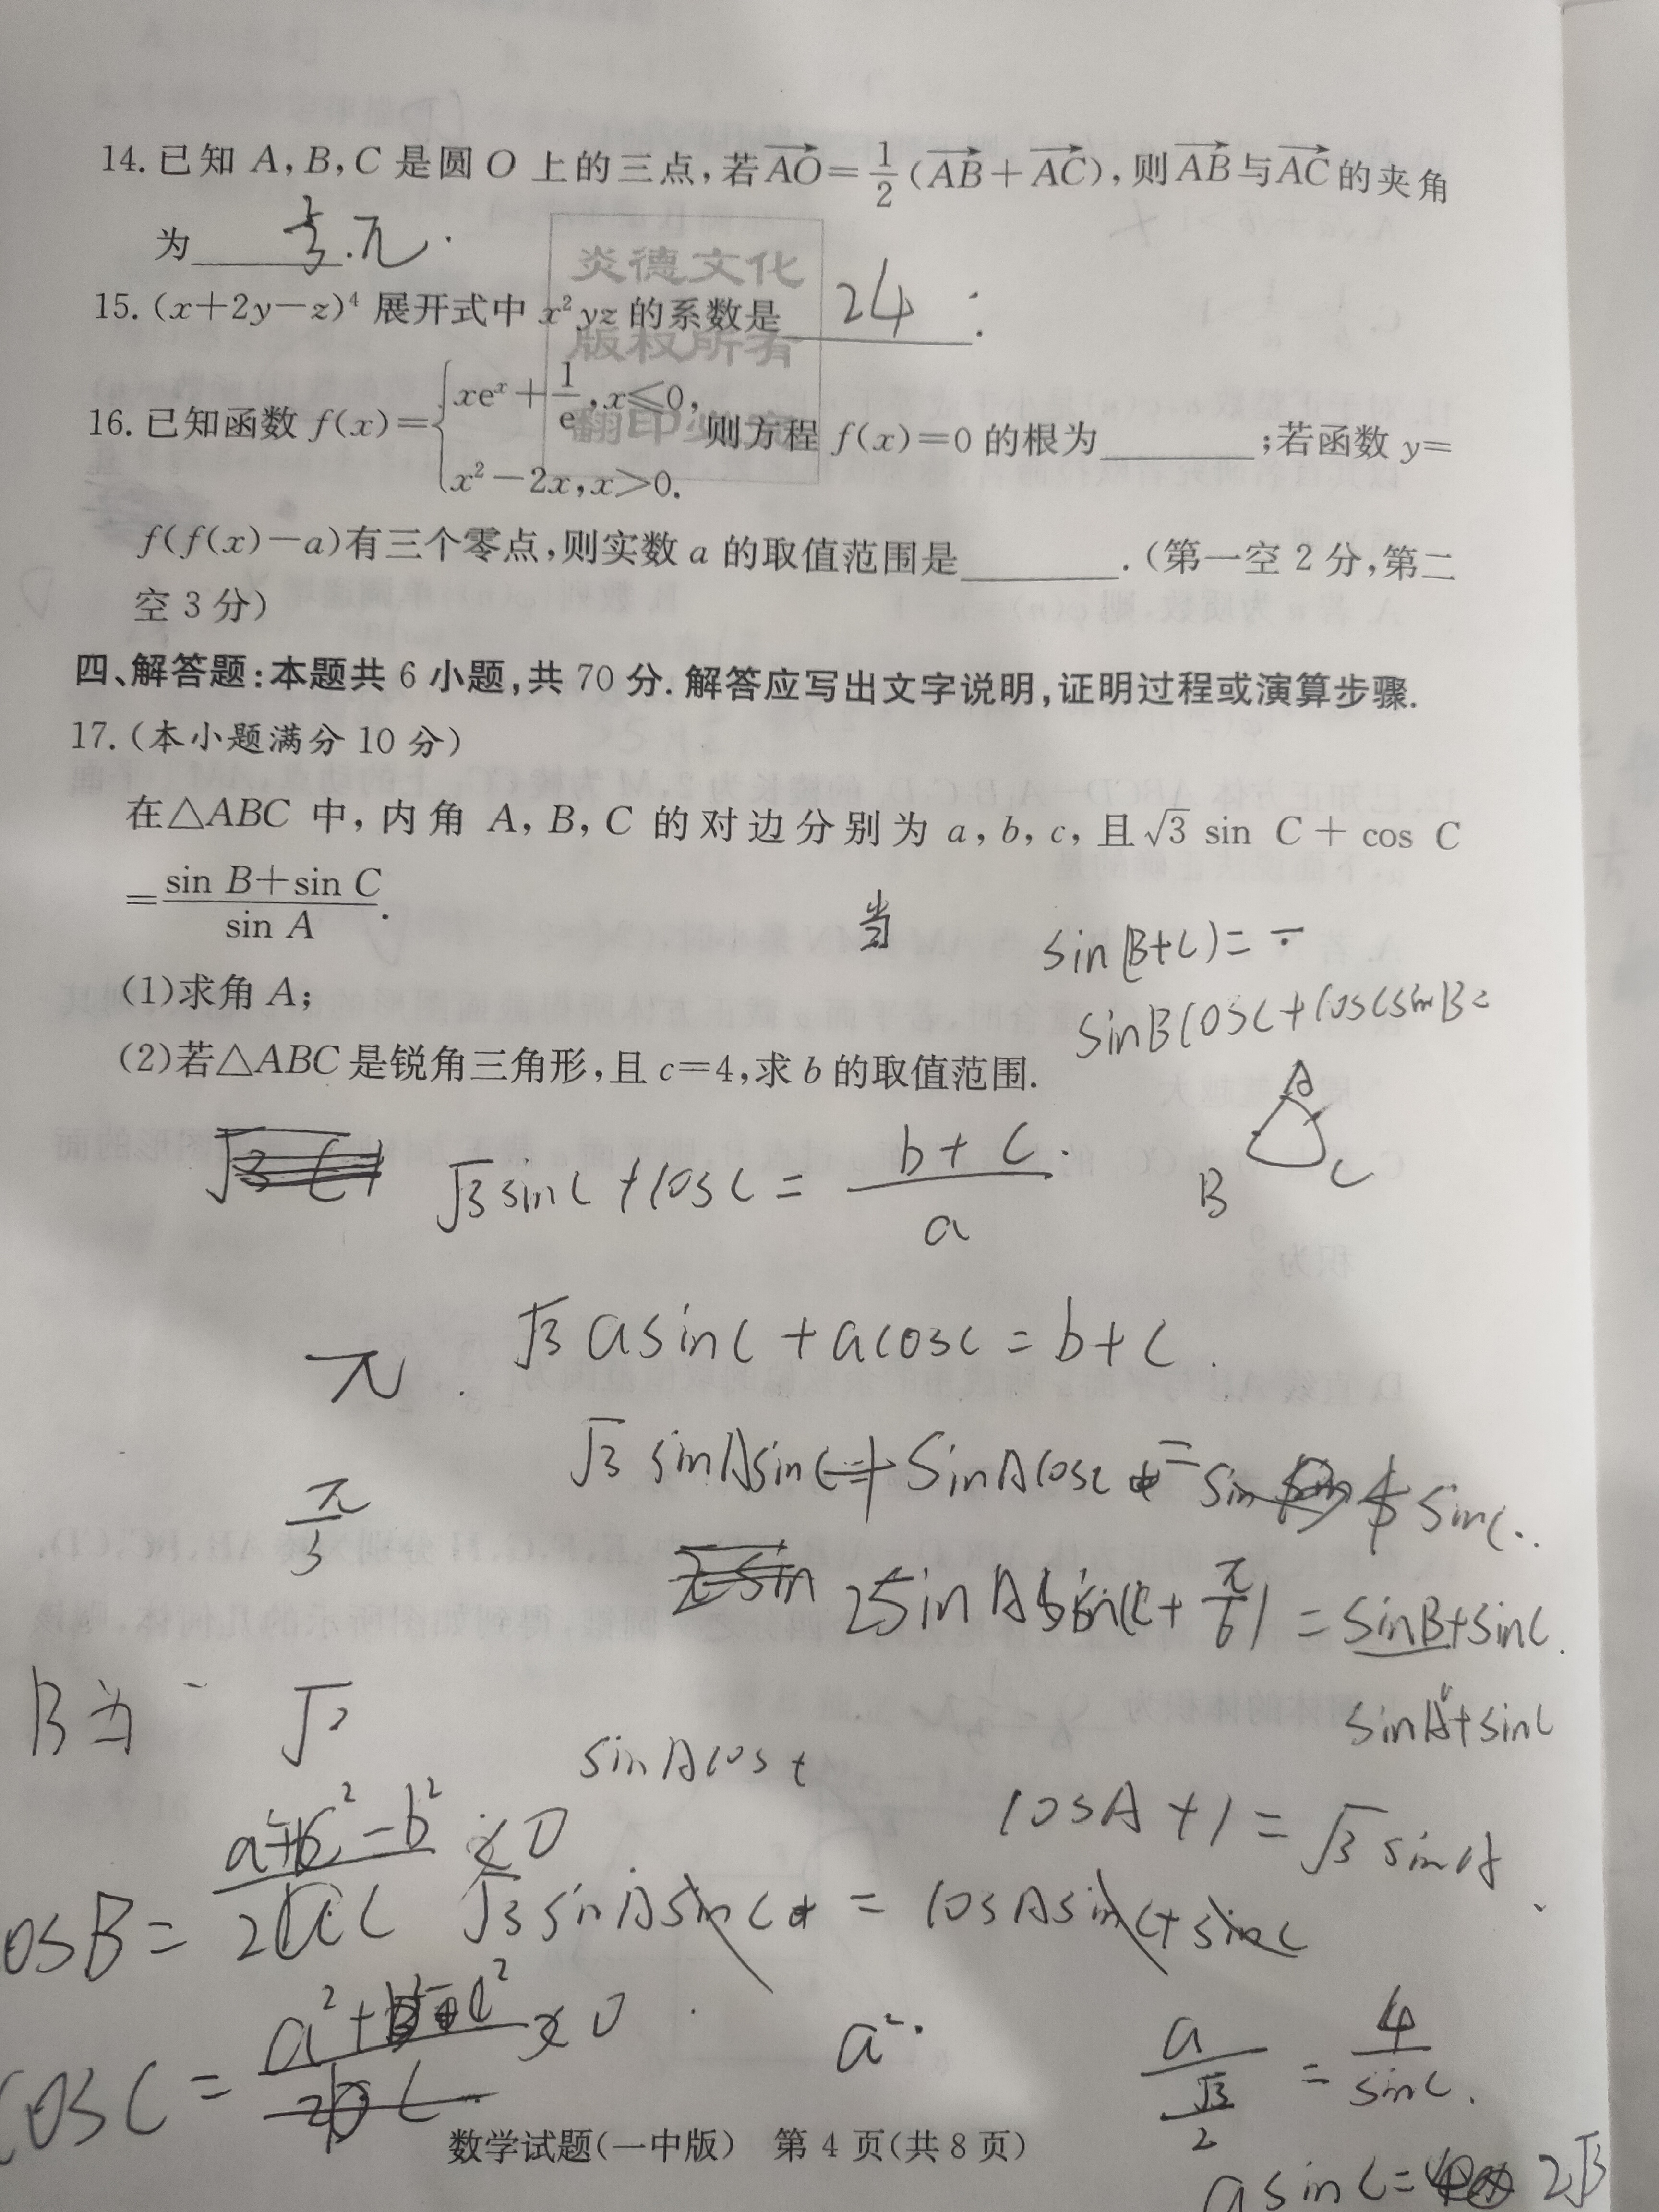 14. 已知 A,B,C 是圆 O 上的三点,若AO=1/2(AB+AC),则AB与AC的夹角
为 π.
炎德文化
15. (x+2y-z)⁴ 展开式中 x²yz 的系数是 24.
版权所有
16. 已知函数 f(x)={xeˣ+1/e,x≤0, x²-2x,x>0. 则方程 f(x)=0 的根为______;若函数 y=
翻印必究
f(f(x)-a)有三个零点,则实数 a 的取值范围是______.(第一空 2 分,第二
空 3 分)
四、解答题:本题共 6 小题,共 70 分. 解答应写出文字说明,证明过程或演算步骤.
17. (本小题满分 10 分)
在△ABC 中, 内角 A, B, C 的对边分别为 a, b, c, 且√3 sin C + cos C
=(sin B+sin C)/sin A.
当
sin(B+C)=
(1)求角 A;
sinBcosC+cosCsinB=
(2)若△ABC 是锐角三角形,且 c=4,求 b 的取值范围.
A
B C
√3sinC+cosC=(b+c)/a
√3asinC+acosC=b+c.
π.
√3sinAsinC+sinAcosC=
sinC.
π/3
2sinAsin(C+π/6)=sinB+sinC.
B为
√2
sinA+sinC
sinAcos
cosA+1=√3sinA
osB=(a²+c²-b²)/2ac
>0
√3sinAsinC=cosAsinC+sinC
cosC=
>0
a².
a/(√3/2)=4/sinC.
asinC=2√3
数学试题(一中版) 第 4 页(共 8 页)